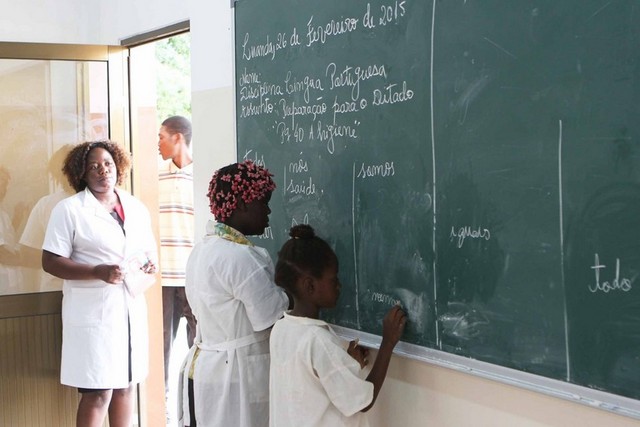 Luanda, 26 de Fevereiro de 2015
Nome:
Disciplina Língua Portuguesa
Assunto: Preparação para o Ditado
"Pg 40 A higiene"
todos nós somos
saúde.
iguais
todo